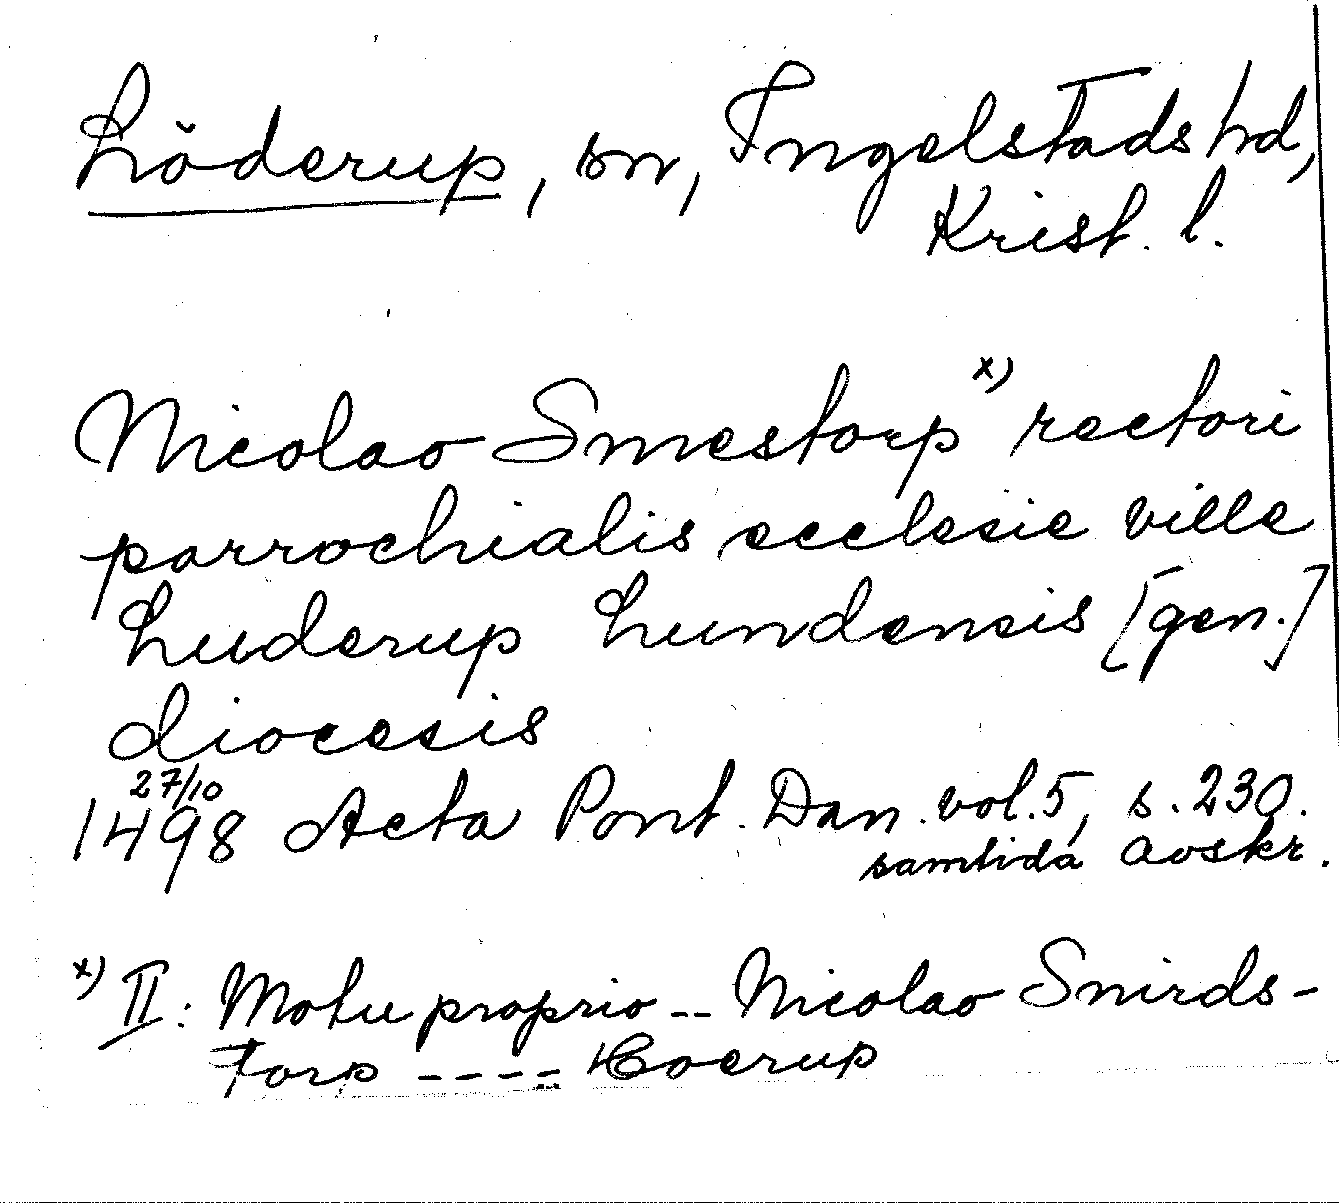 Löderup, sn, Ingelstads hd,
Krist. l.
Nicolao Smestorp x) rectori
parrochialis ecclesie ville
Luderup Lundensis [gen.]
diocesis
27/10
1498 Acta Pont. Dan. vol. 5, s. 230.
samtida avskr.
x) II: Motu proprio -- Nicolao Snirds-
torp ---- Coerup